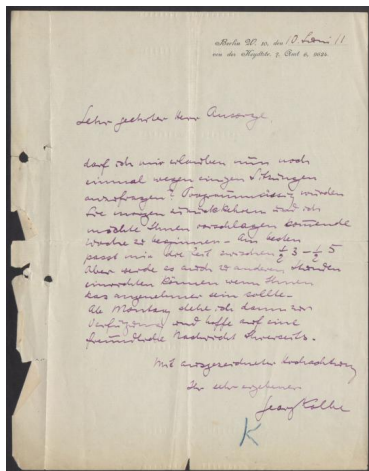 Berlin W. 10, den 10. Juni 11
von der Heydtstr. 7, Amt 6,
Sehr geehrter Herr Ansorge,
darf ich mir erlauben nun noch
einmal wegen einigen Sitzungen
anzufragen? Programmässig würden
Sie morgen zurückkehren und ich
möchte Ihnen vorschlagen kommende
Woche zu beginnen – Am besten
passt mir Ihre Zeit zwischen ½ 3 – ½ 5
aber werde es auch zu anderen Stunden
einrichten können wenn Ihnen
das angenehmer sein sollte.
Ab Montag stehe ich dann zur
Verfügung und hoffe auf eine
freundliche Nachricht Ihrerseits.
Mit ausgezeichneter Hochachtung
Ihr sehr ergebener
Georg Kolbe
K